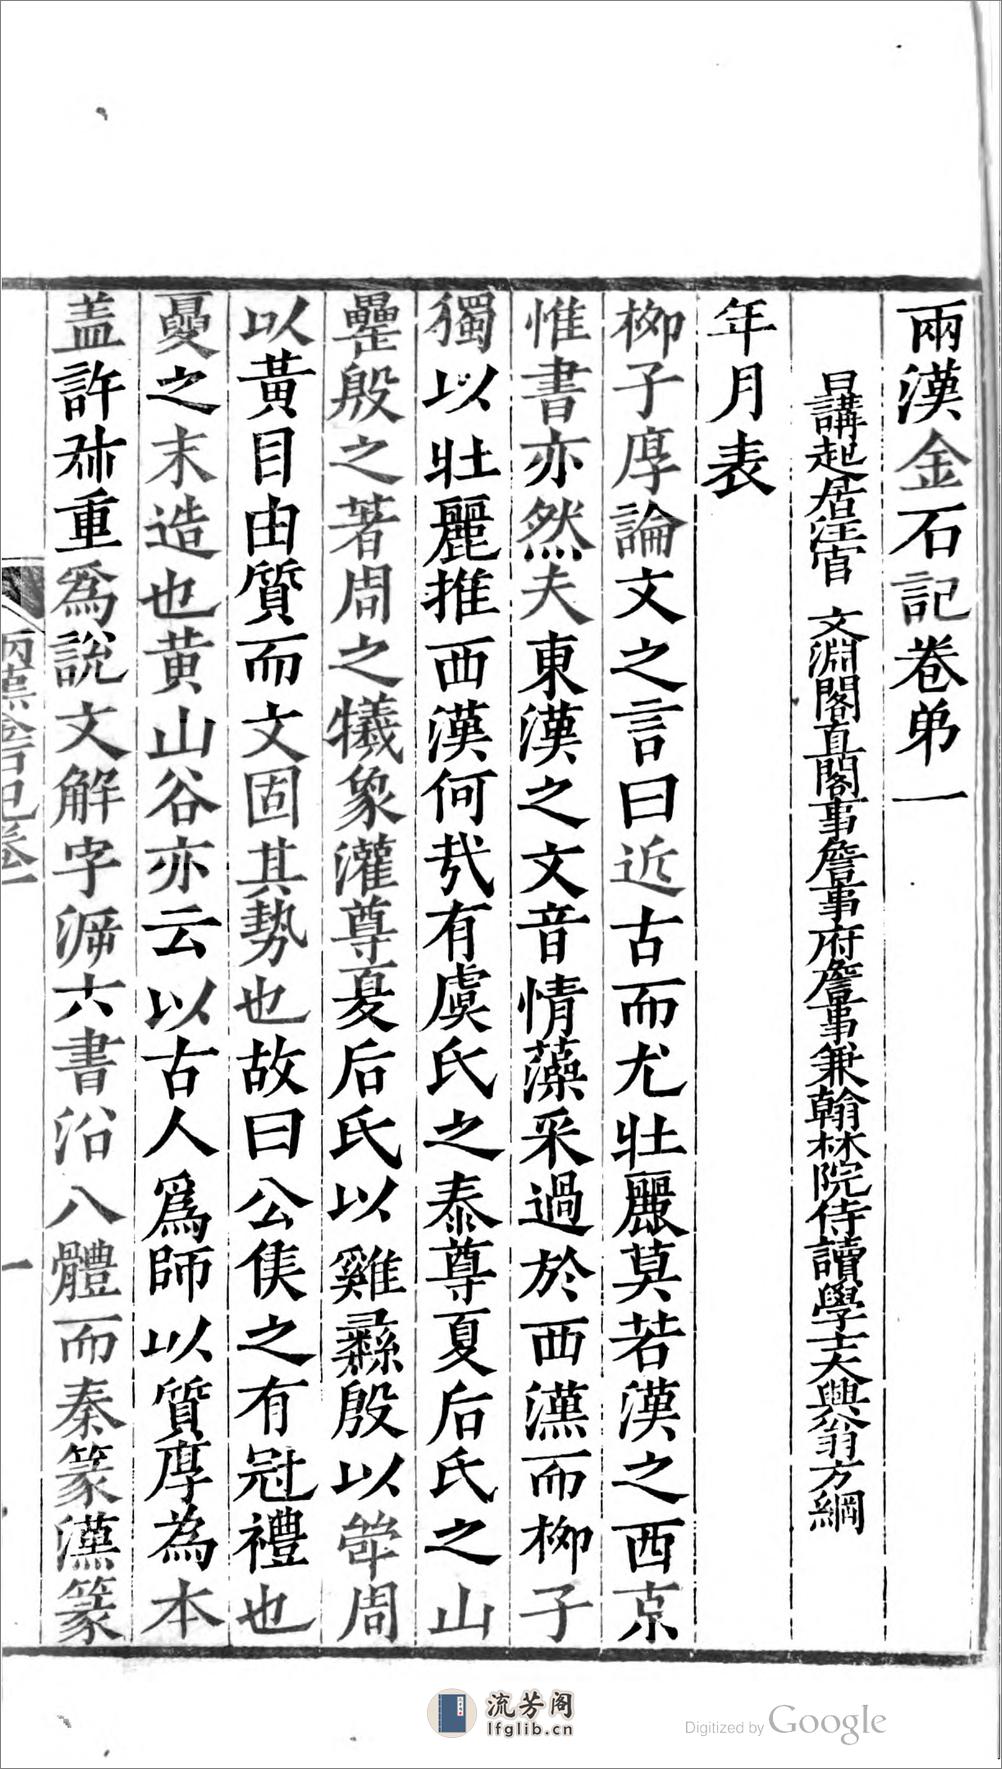 兩漢金石記卷弟一
日講起居注官 文淵閣直閣事詹事府詹事兼翰林院侍讀學士大興翁方綱
年月表
柳子厚論文之言曰近古而尤壯麗莫若漢之西京
惟書亦然夫東漢之文音情藻采過於西漢而柳子
獨以壯麗推西漢何哉有虞氏之泰尊夏后氏之山
罍殷之著周之犧象灌尊夏后氏以雞彝殷以斝周
以黃目由質而文固其勢也故曰公侯之有冠禮也
夏之末造也黃山谷亦云以古人爲師以質厚為本
盖許叔重爲說文解字源六書沿八體而秦篆漢篆
兩漢金石記卷一
一
流芳阁
lfglib.cn
Digitized by Google